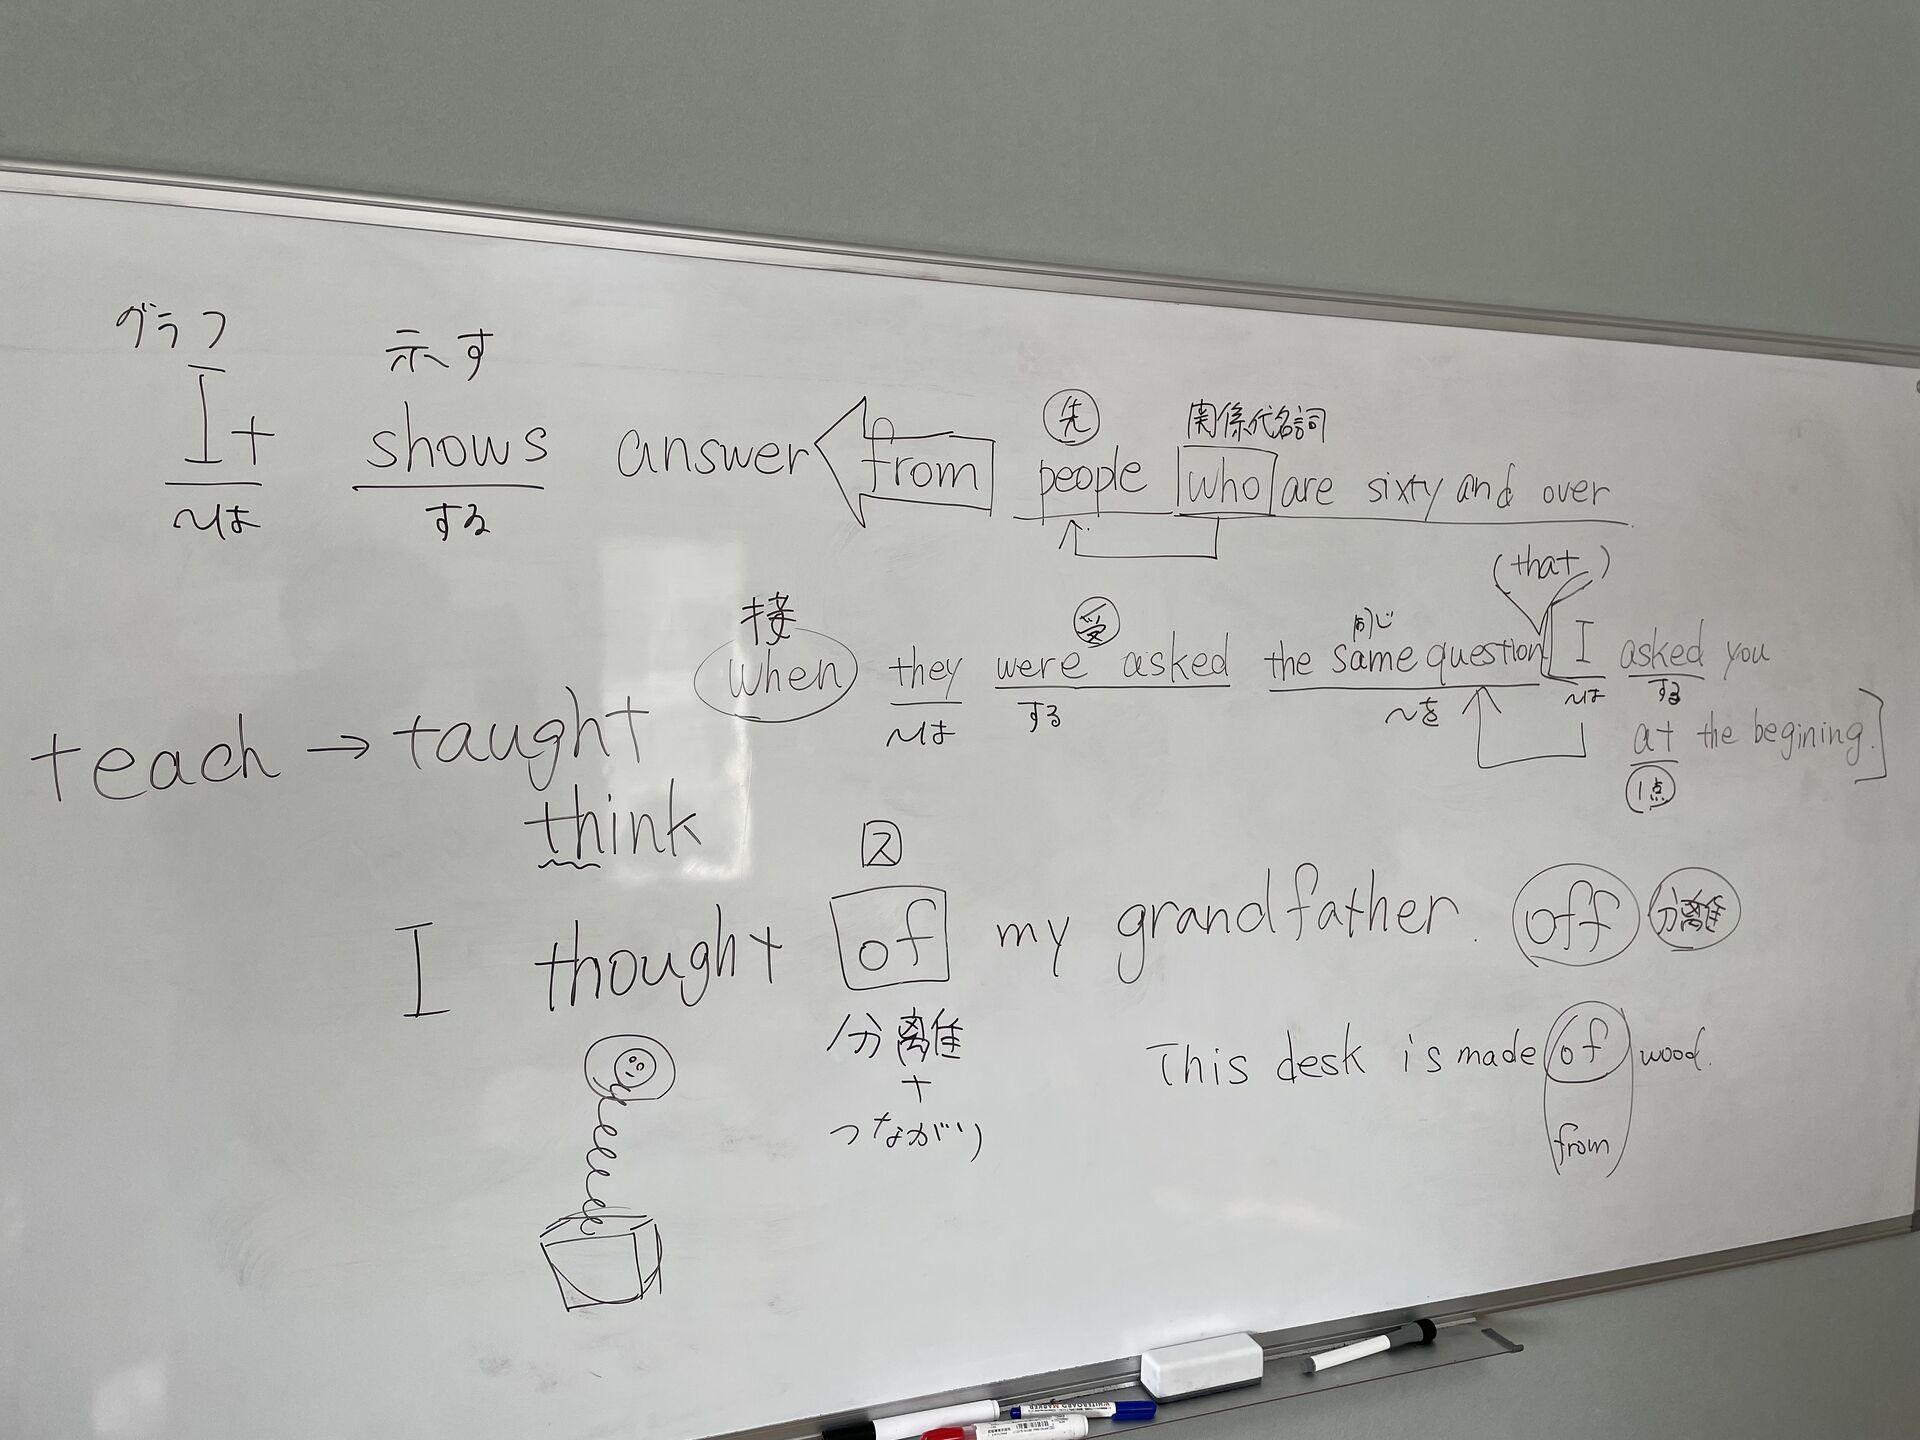 グラフ 示す
It shows answer from people who are sixty and over
先 関係代名詞
〜は する
(that)
接 受 同じ
when they were asked the same question [I asked you
〜は する 〜を 〜は する
at the begining.]
1点
teach → taught
think
ス
I thought of my grandfather. off 分離
分離
+
つながり
This desk is made of wood.
from
WHITEBOARD MARKER